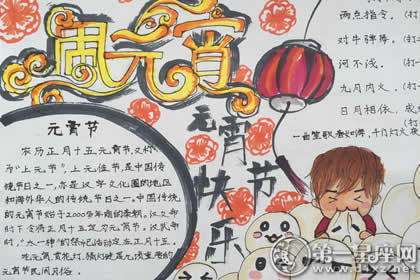 闹元宵
元宵节
农历正月十五元宵节,又称
为“上元节”,上元佳节,是中国传
统节日之一,亦是汉字文化圈的地区
和海外华人的传统节日之一,中国传
统的元宵始于2000多年前的秦朝,汉文帝
时下令将正月十五定为元宵节,汉武帝
时,“太一神”的祭祀活动定在正月十五。
吃元宵,赏花灯,猜灯谜是
元宵节民间习俗。
元宵
节
快
乐
两点指令。(打一
对牛弹琴。(打
河不浅。
九月内火。
日月相依。
第一星座网
www.d1xz.net